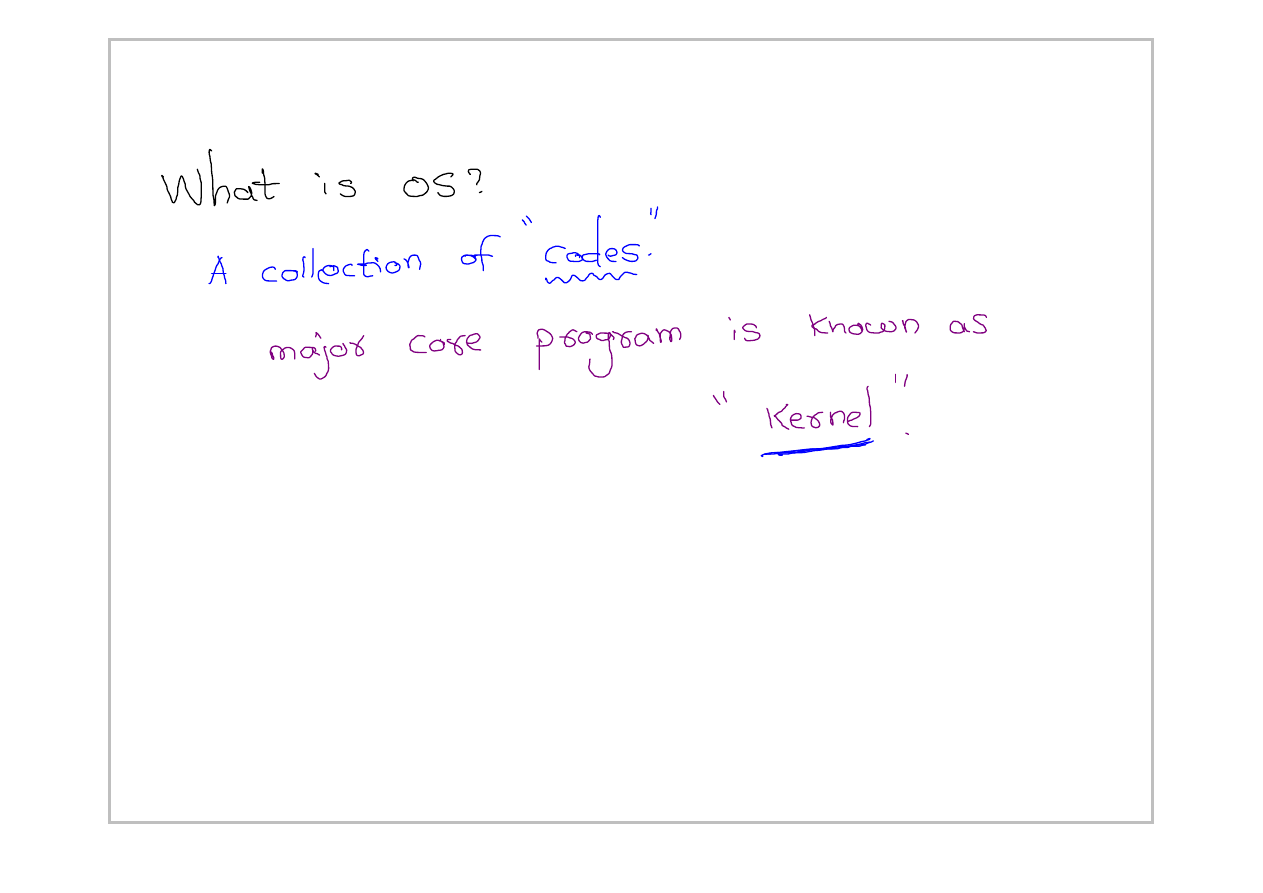 What is OS?
A collection of "codes."
major core program is known as
"Kernel".